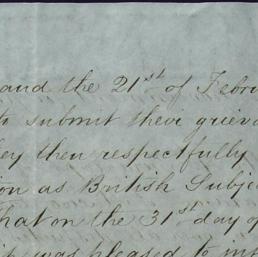 and the 21st of Febru
to submit their grieva
ey then respectfully
ion as British Subje
That on the 31st day of
it was pleased to in